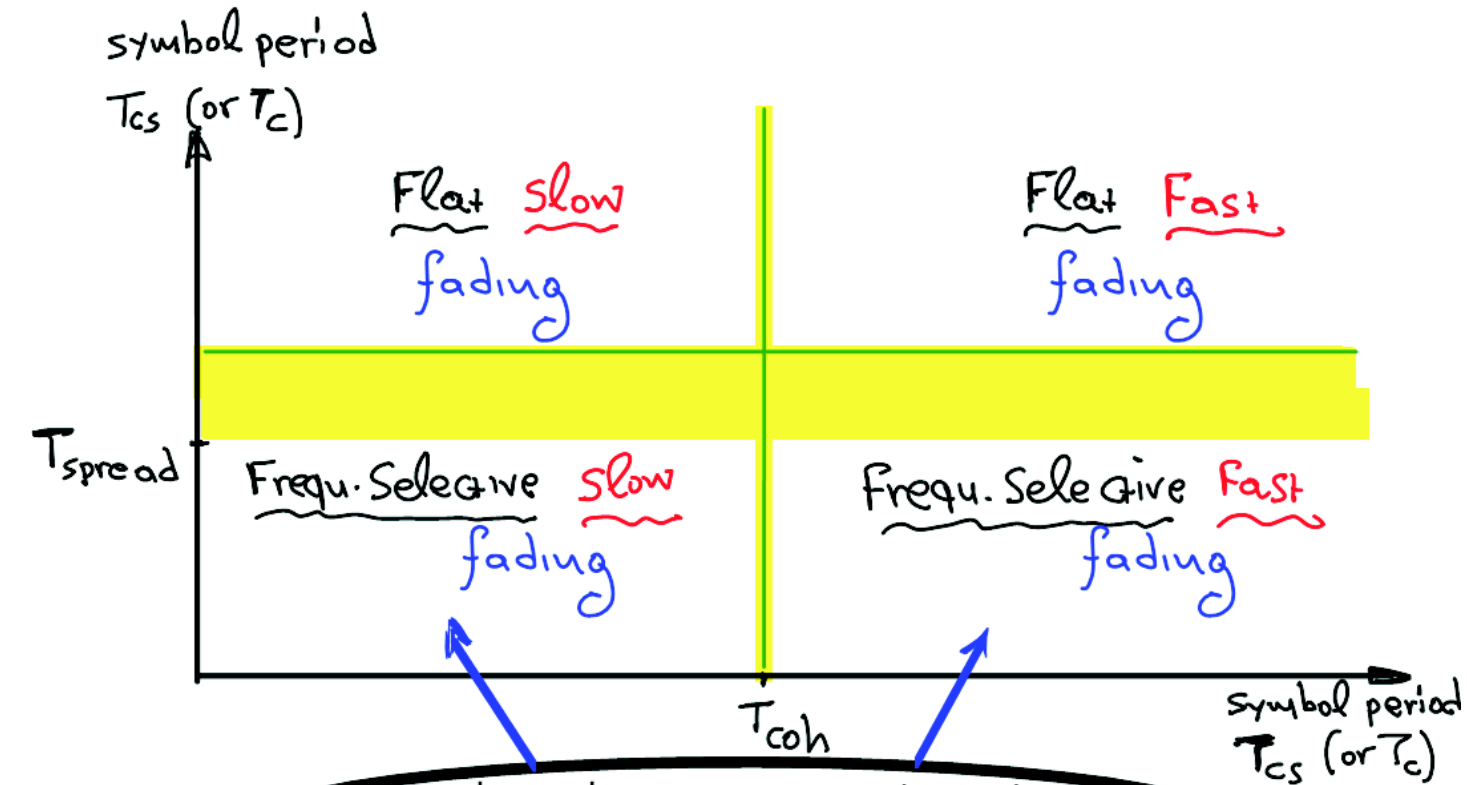 symbol period
Tcs (or Tc)
Flat slow
fading
Flat Fast
fading
Tspread
Frequ. Selective slow
fading
Frequ. Selective Fast
fading
Tcoh
symbol period
Tcs (or Tc)